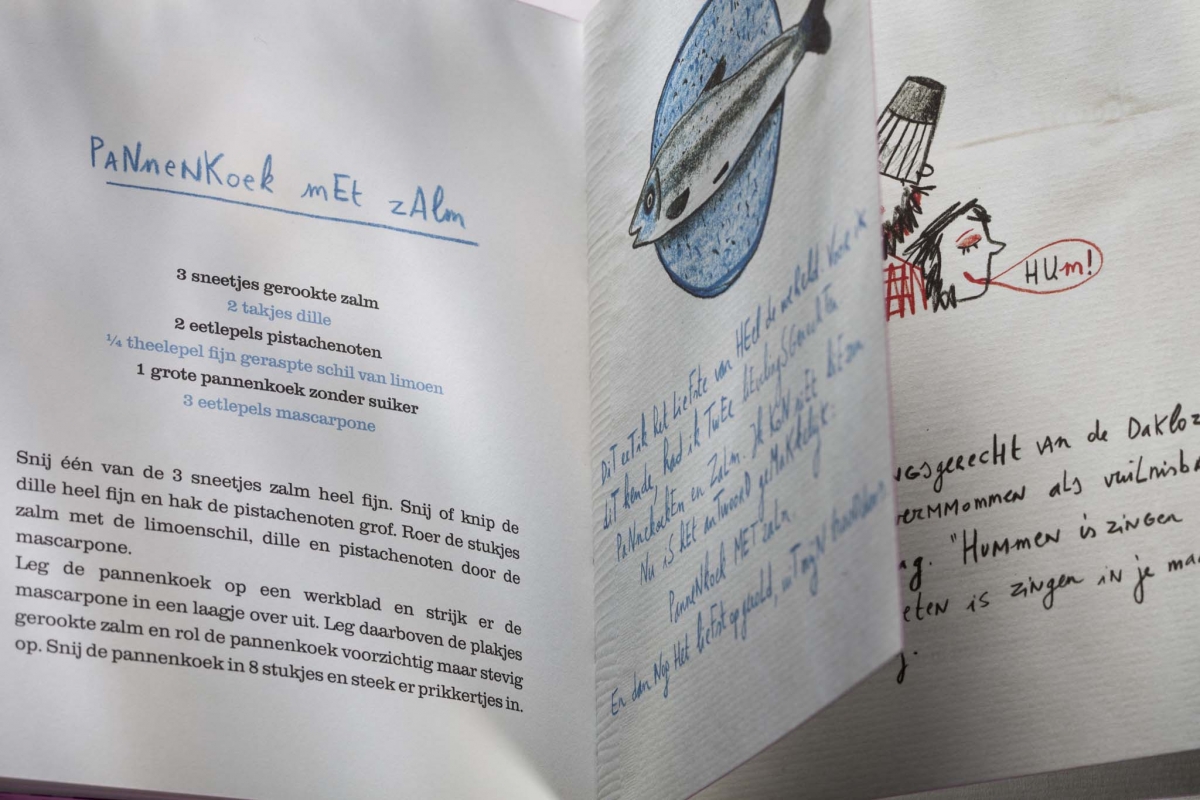 PANNENKOEK MET ZALM
3 sneetjes gerookte zalm
2 takjes dille
2 eetlepels pistachenoten
¼ theelepel fijn geraspte schil van limoen
1 grote pannenkoek zonder suiker
3 eetlepels mascarpone
Snij één van de 3 sneetjes zalm heel fijn. Snij of knip de
dille heel fijn en hak de pistachenoten grof. Roer de stukjes
zalm met de limoenschil, dille en pistachenoten door de
mascarpone.
Leg de pannenkoek op een werkblad en strijk er de
mascarpone in een laagje over uit. Leg daarboven de plakjes
gerookte zalm en rol de pannenkoek voorzichtig maar stevig
op. Snij de pannenkoek in 8 stukjes en steek er prikkertjes in.
Dit eet ik het liefste van HEel de wereld. Voor ik
dit kende, had ik TWEE lievelingSGerechten
PaNNekoekEN en Zalm. Ik KoN niEt kiEzen
Nu is hEt anTwooRD geMaKkelijk:
PanneNkoek MET zalm.
En dan Nog Het liefst opgerold, uiT mijn
HUm!
NGSgerecht van de Dakloz
vermmommen als vuilnisba
g. "Hummen is zingen
eten is zingen in je ma